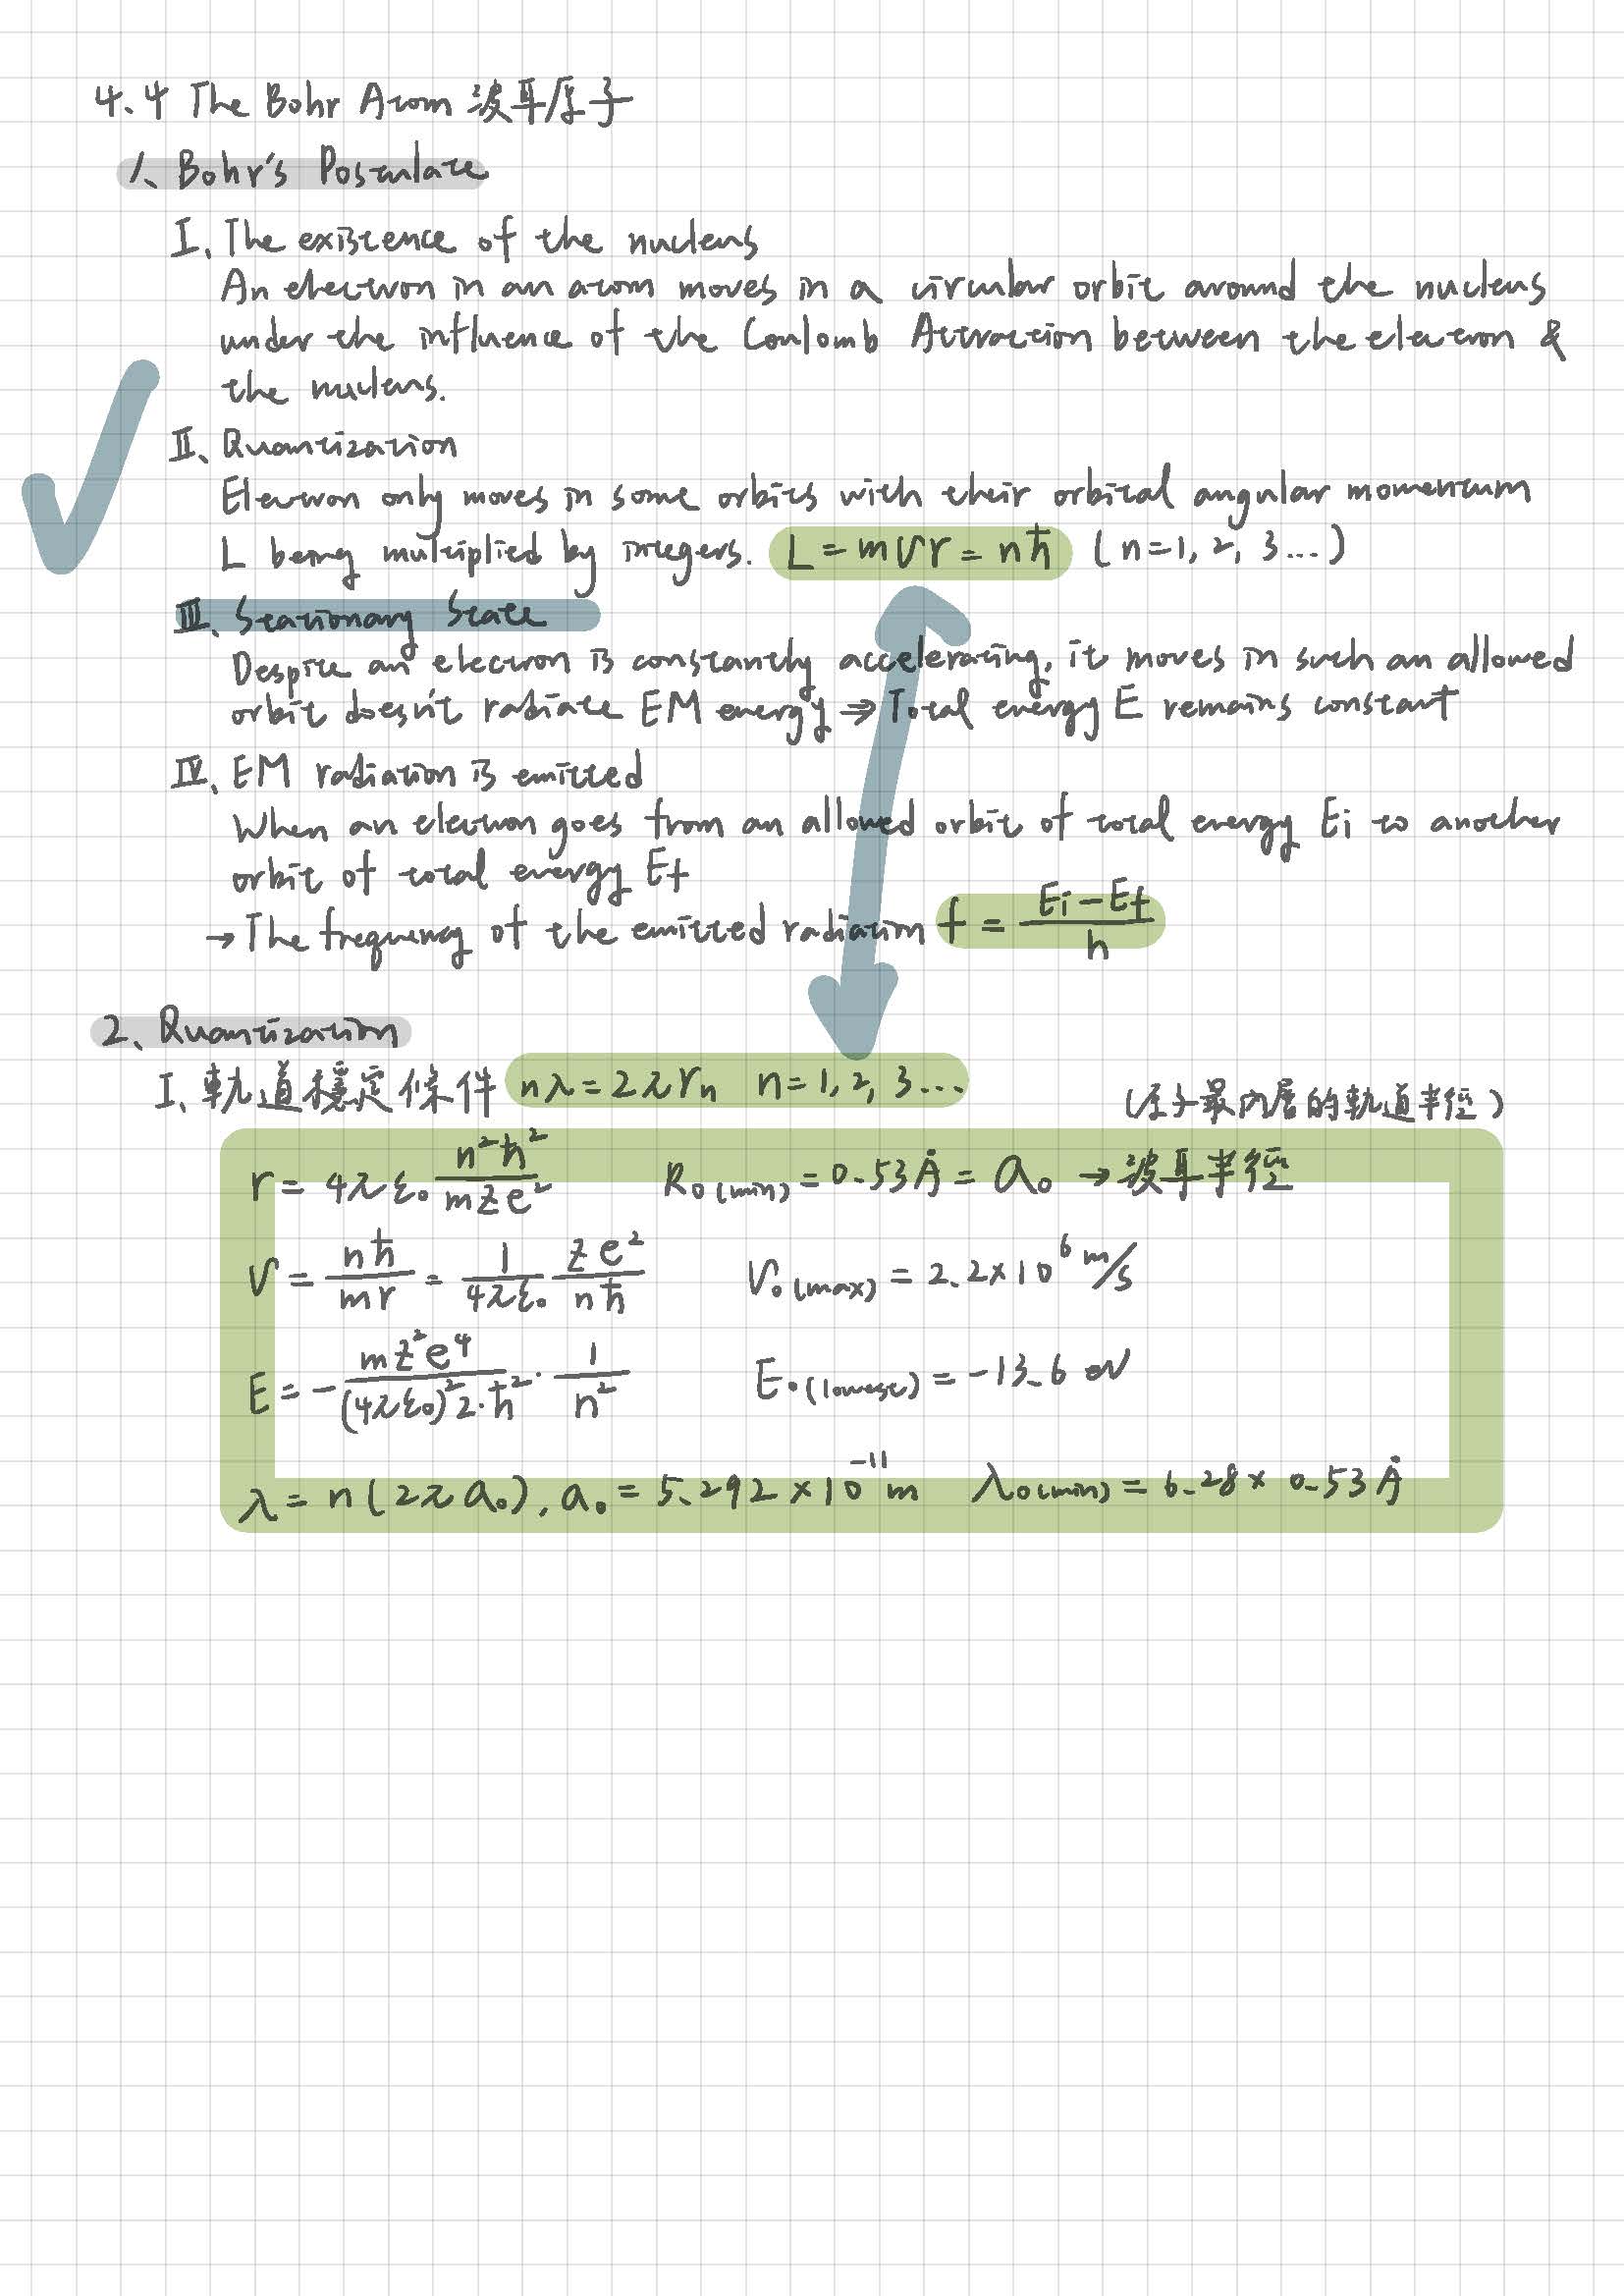 4.4 The Bohr Atom 波耳原子
1、Bohr's Postulate
I、The existence of the nucleus
An electron in an atom moves in a circular orbit around the nucleus
under the influence of the Coulomb Attraction between the electron &
the nucleus.
II、Quantization
Electron only moves in some orbits with their orbital angular momentum
L being multiplied by integers. L = mvr = nħ (n=1, 2, 3...)
III、Stationary State
Despite an electron is constantly accelerating, it moves in such an allowed
orbit doesn't radiate EM energy ⇒ Total energy E remains constant
IV、EM radiation is emitted
When an electron goes from an allowed orbit of total energy Ei to another
orbit of total energy Ef
→ The frequency of the emitted radiation f = (Ei - Ef)/h
2、Quantization
I、軌道穩定條件 nλ = 2πrn n=1, 2, 3...
(原子最內層的軌道半徑)
r = 4πε₀ n²ħ²/mZe² R₀(min) = 0.53Å = a₀ → 波耳半徑
v = nħ/mr = 1/4πε₀ Ze²/nħ v₀(max) = 2.2×10⁶ m/s
E = -mZ²e⁴/(4πε₀)²2·ħ² · 1/n² E₀(lowest) = -13.6 eV
λ = n(2πa₀), a₀ = 5.292×10⁻¹¹m λ₀(min) = 6.28× 0.53Å